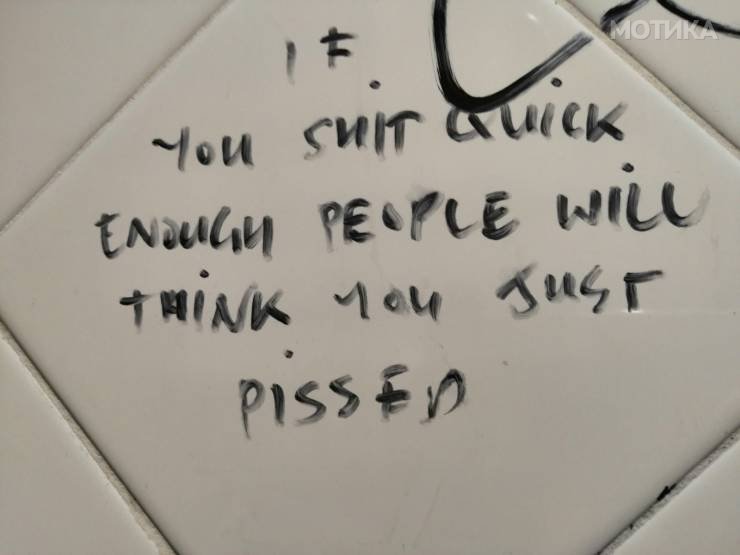 МОТИКА
IF
YOU SHIT QUICK
ENOUGH PEOPLE WILL
THINK YOU JUST
PISSED